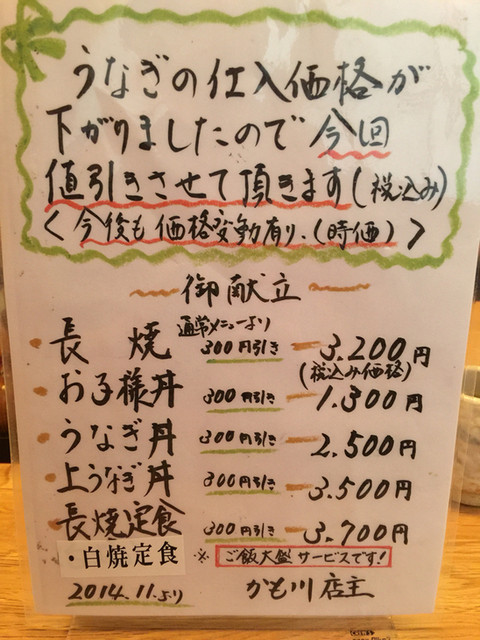 うなぎの仕入価格が
下がりましたので今回
値引きさせて頂きます(税込み)
<今後も価格変動有り、(時価)>
御献立
通常メニューより
長焼 300円引き 3.200円
(税込み価格)
お子様丼 300円引き 1.300円
うなぎ丼 300円引き 2.500円
上うなぎ丼 300円引き 3.500円
長焼定食 300円引き 3.700円
・白焼定食 ※ご飯大盛サービスです!
2014.11.より かも川店主